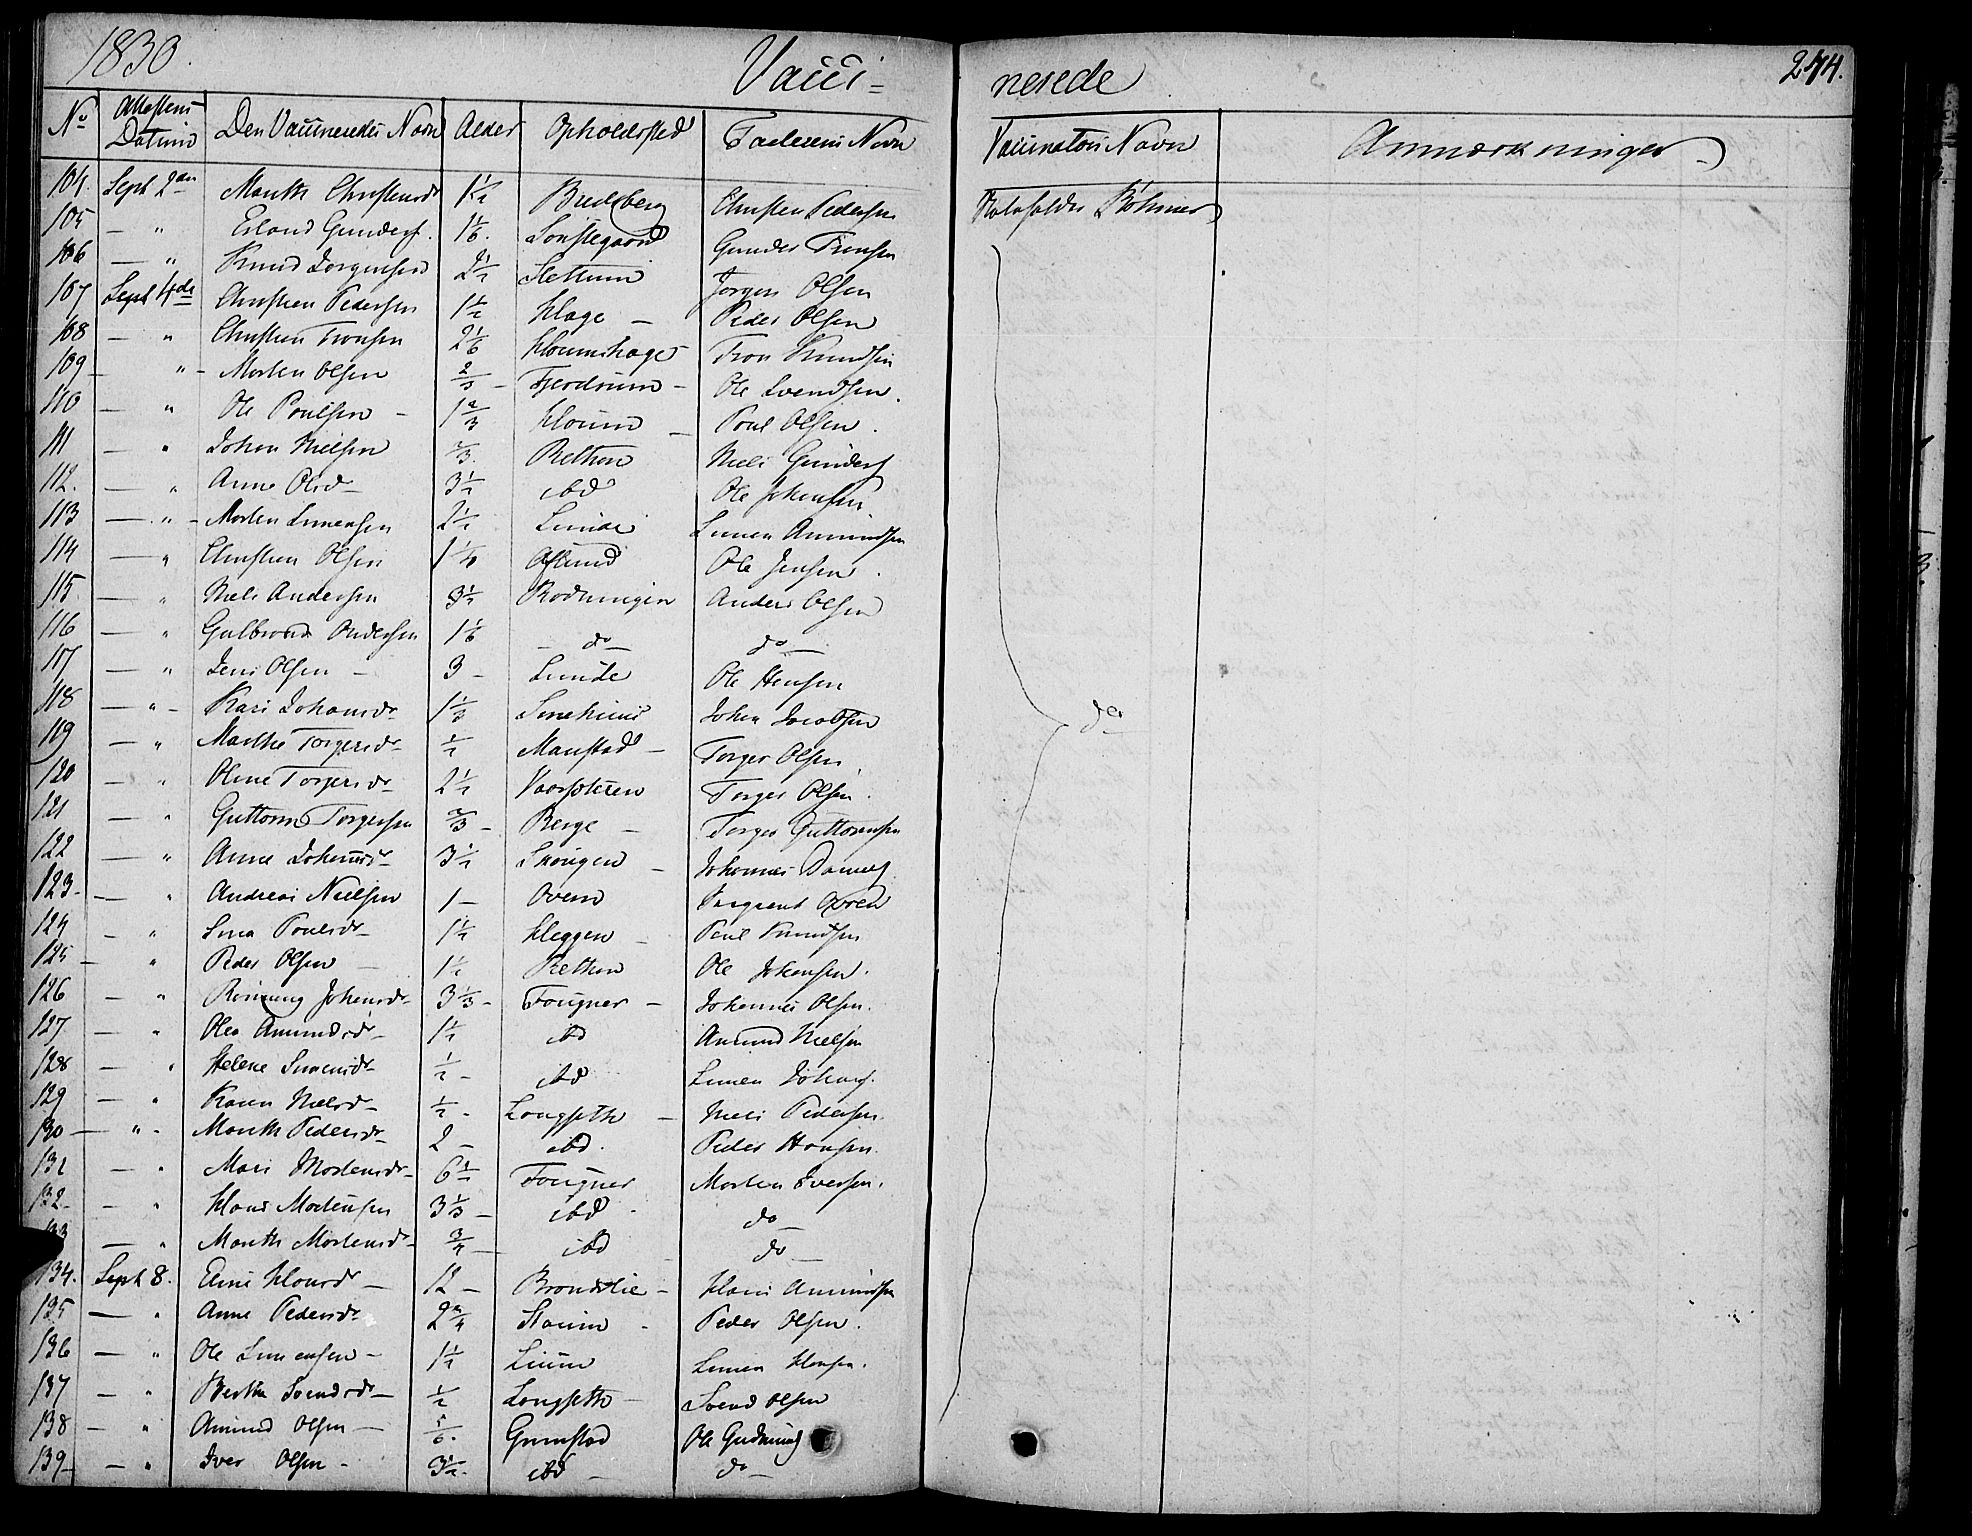 1830.
Vacci-
nerede
244.
No Attestens Datum Den Vaccineredes Navn Alder Opholdssted Faderens Navn Vaccinators Navn Anmærkninger
104. Sept 2den Marith Christensdr 1½ Bredsberg Christen Pedersen Böhmer
105 — " Erland Gunders. 1 1/6. Gunder Tronsen
106 — " Knud Jörgensen 2½ Slettum Jörgen Olsen
107 Sept 4de Christen Pedersen 1½ Hage — Peder Olsen
108 — " Christen Tronsen 2 1/6 Tron Knudsen
109 — " — Morten Olsen 2/3 — Fjerdrum — Ole Svendsen.
110 — " Ole Poulsen — 1 2/3 Houm — Poul Olsen.
111 — " Johan Nielsen 2/3. Rethen Niels Gunders
112. — " Anne Olsd — 3½ ibd Ole Johansen
113 — " — Morten Simensen 2½ Lunde Simen Amundsen
114 — " Christen Olsen Aslund Ole Jensen.
115 — " Niels Andersen 3½ Rodningen Anders Olsen
116 — " Gulbrand Andersen 1 1/6 — do — do —
117 — " Jens Olsen — 3 — Lunde Ole Hansen
118 — " — Kari Johansdr 1 1/3 Johan Jacobsen
119 — " Marthe Torgersdr ½ Manstad — Torger Olsen do
120 — " Oline Torgersdr 2½ Torger Olsen.
121 — " Guttorm Torgersen 2/3 — Berge — Torger Guttormsen
122 — " Anne Johansdr 3½ Skougen — Johannes
123 — " Andreas Nielsen 1 — Oven
124 — " Poulsdr — 1½ Kleggen — Poul Knudsen
125 — " Peder Olsen — 1½ Rethen Ole Johansen.
126 — " Rönnaug Johansdr 3 1/3 — Fougner — Johannes Olsen.
127 — " Olea Amundsdr — 1½ ibd Amund Nielsen
128 — " Helene Simensdr — ½ — ibd Simen Johans.
129 — " Karen Nielsdr — ½ — Longseth — Niels Pedersen.
130 — " — Marith Pedersdr 2 — ibd. Peder Hansen.
131 — " Mari Mortensdr — 6½ Fougner Morten Iversen.
132 — " Hans Mortensen 3 1/3 — ibd do —
133 — " Marith Mortensdr — 3/4 — ibd do —
134. Sept 8. Hansdr — 12 — Brondslie — Hans Amundsen
135 — " Anne Pedersdr 2 3/4 — Peder Olsen.
136 — " Ole Simensen — 1½ Simen Hansen.
137 — " Berthe Svendsdr — ½ Longseth — Svend Olsen
138 — " Amund Olsen — 5/6. Grimstad Ole
139 — " Iver Olsen — 3½. ibd — do —